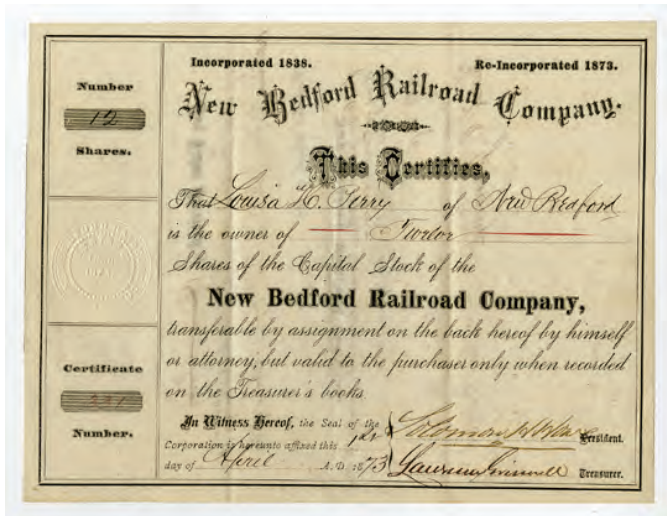 Number
12
Shares.
Certificate
221
Number.
Incorporated 1838. Re-Incorporated 1873.
New Bedford Railroad Company.
This Certifies,
That Louisa H. Perry of New Bedford
is the owner of Twelve
Shares of the Capital Stock of the
New Bedford Railroad Company,
transferable by assignment on the back hereof by himself
or attorney, but valid to the purchaser only when recorded
on the Treasurer's books.
In Witness Hereof, the Seal of the
Corporation is hereunto affixed this 1st
day of April A.D. 1873
President.
Treasurer.